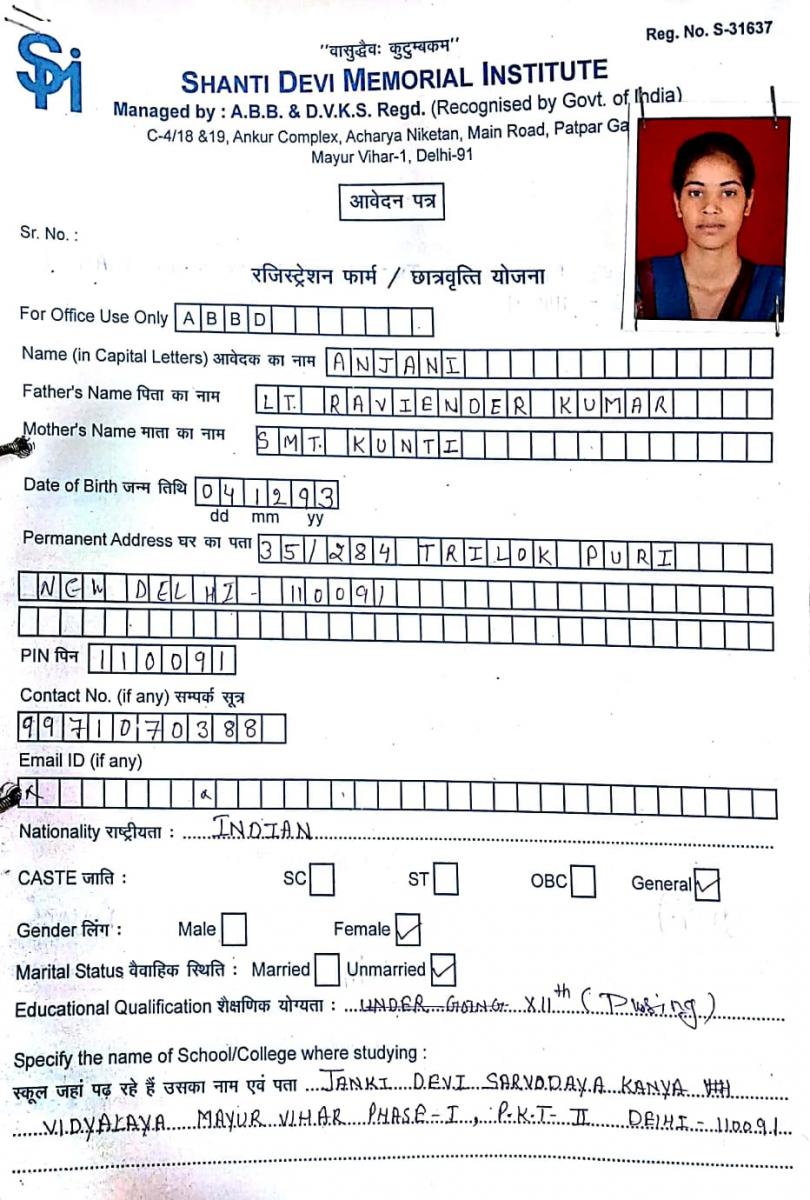 Reg. No. S-31637
SPMI
"वासुद्धैवः कुटुम्बकम"
SHANTI DEVI MEMORIAL INSTITUTE
Managed by : A.B.B. & D.V.K.S. Regd. (Recognised by Govt. of India)
C-4/18 &19, Ankur Complex, Acharya Niketan, Main Road, Patpar Ga
Mayur Vihar-1, Delhi-91
आवेदन पत्र
Sr. No. :
रजिस्ट्रेशन फार्म / छात्रवृत्ति योजना
For Office Use Only ABBD
Name (in Capital Letters) आवेदक का नाम ANJANI
Father's Name पिता का नाम LT. RAVIENDER KUMAR
Mother's Name माता का नाम SMT. KUNTI
Date of Birth जन्म तिथि 041293
dd mm yy
Permanent Address घर का पता 35/284 TRILOK PURI
NEW DELHI- 110091
PIN पिन 110091
Contact No. (if any) सम्पर्क सूत्र
9971070388
Email ID (if any)
Nationality राष्ट्रीयता : INDIAN
CASTE जाति : SC ST OBC General ✓
Gender लिंग : Male Female ✓
Marital Status वैवाहिक स्थिति : Married Unmarried ✓
Educational Qualification शैक्षणिक योग्यता : UNDER GOING XIIth
Specify the name of School/College where studying :
स्कूल जहां पढ़ रहे हैं उसका नाम एवं पता JANKI DEVI SARVODAYA KANYA
VIDYALAYA MAYUR VIHAR PHASE-I, P.K.T- II DELHI-110091